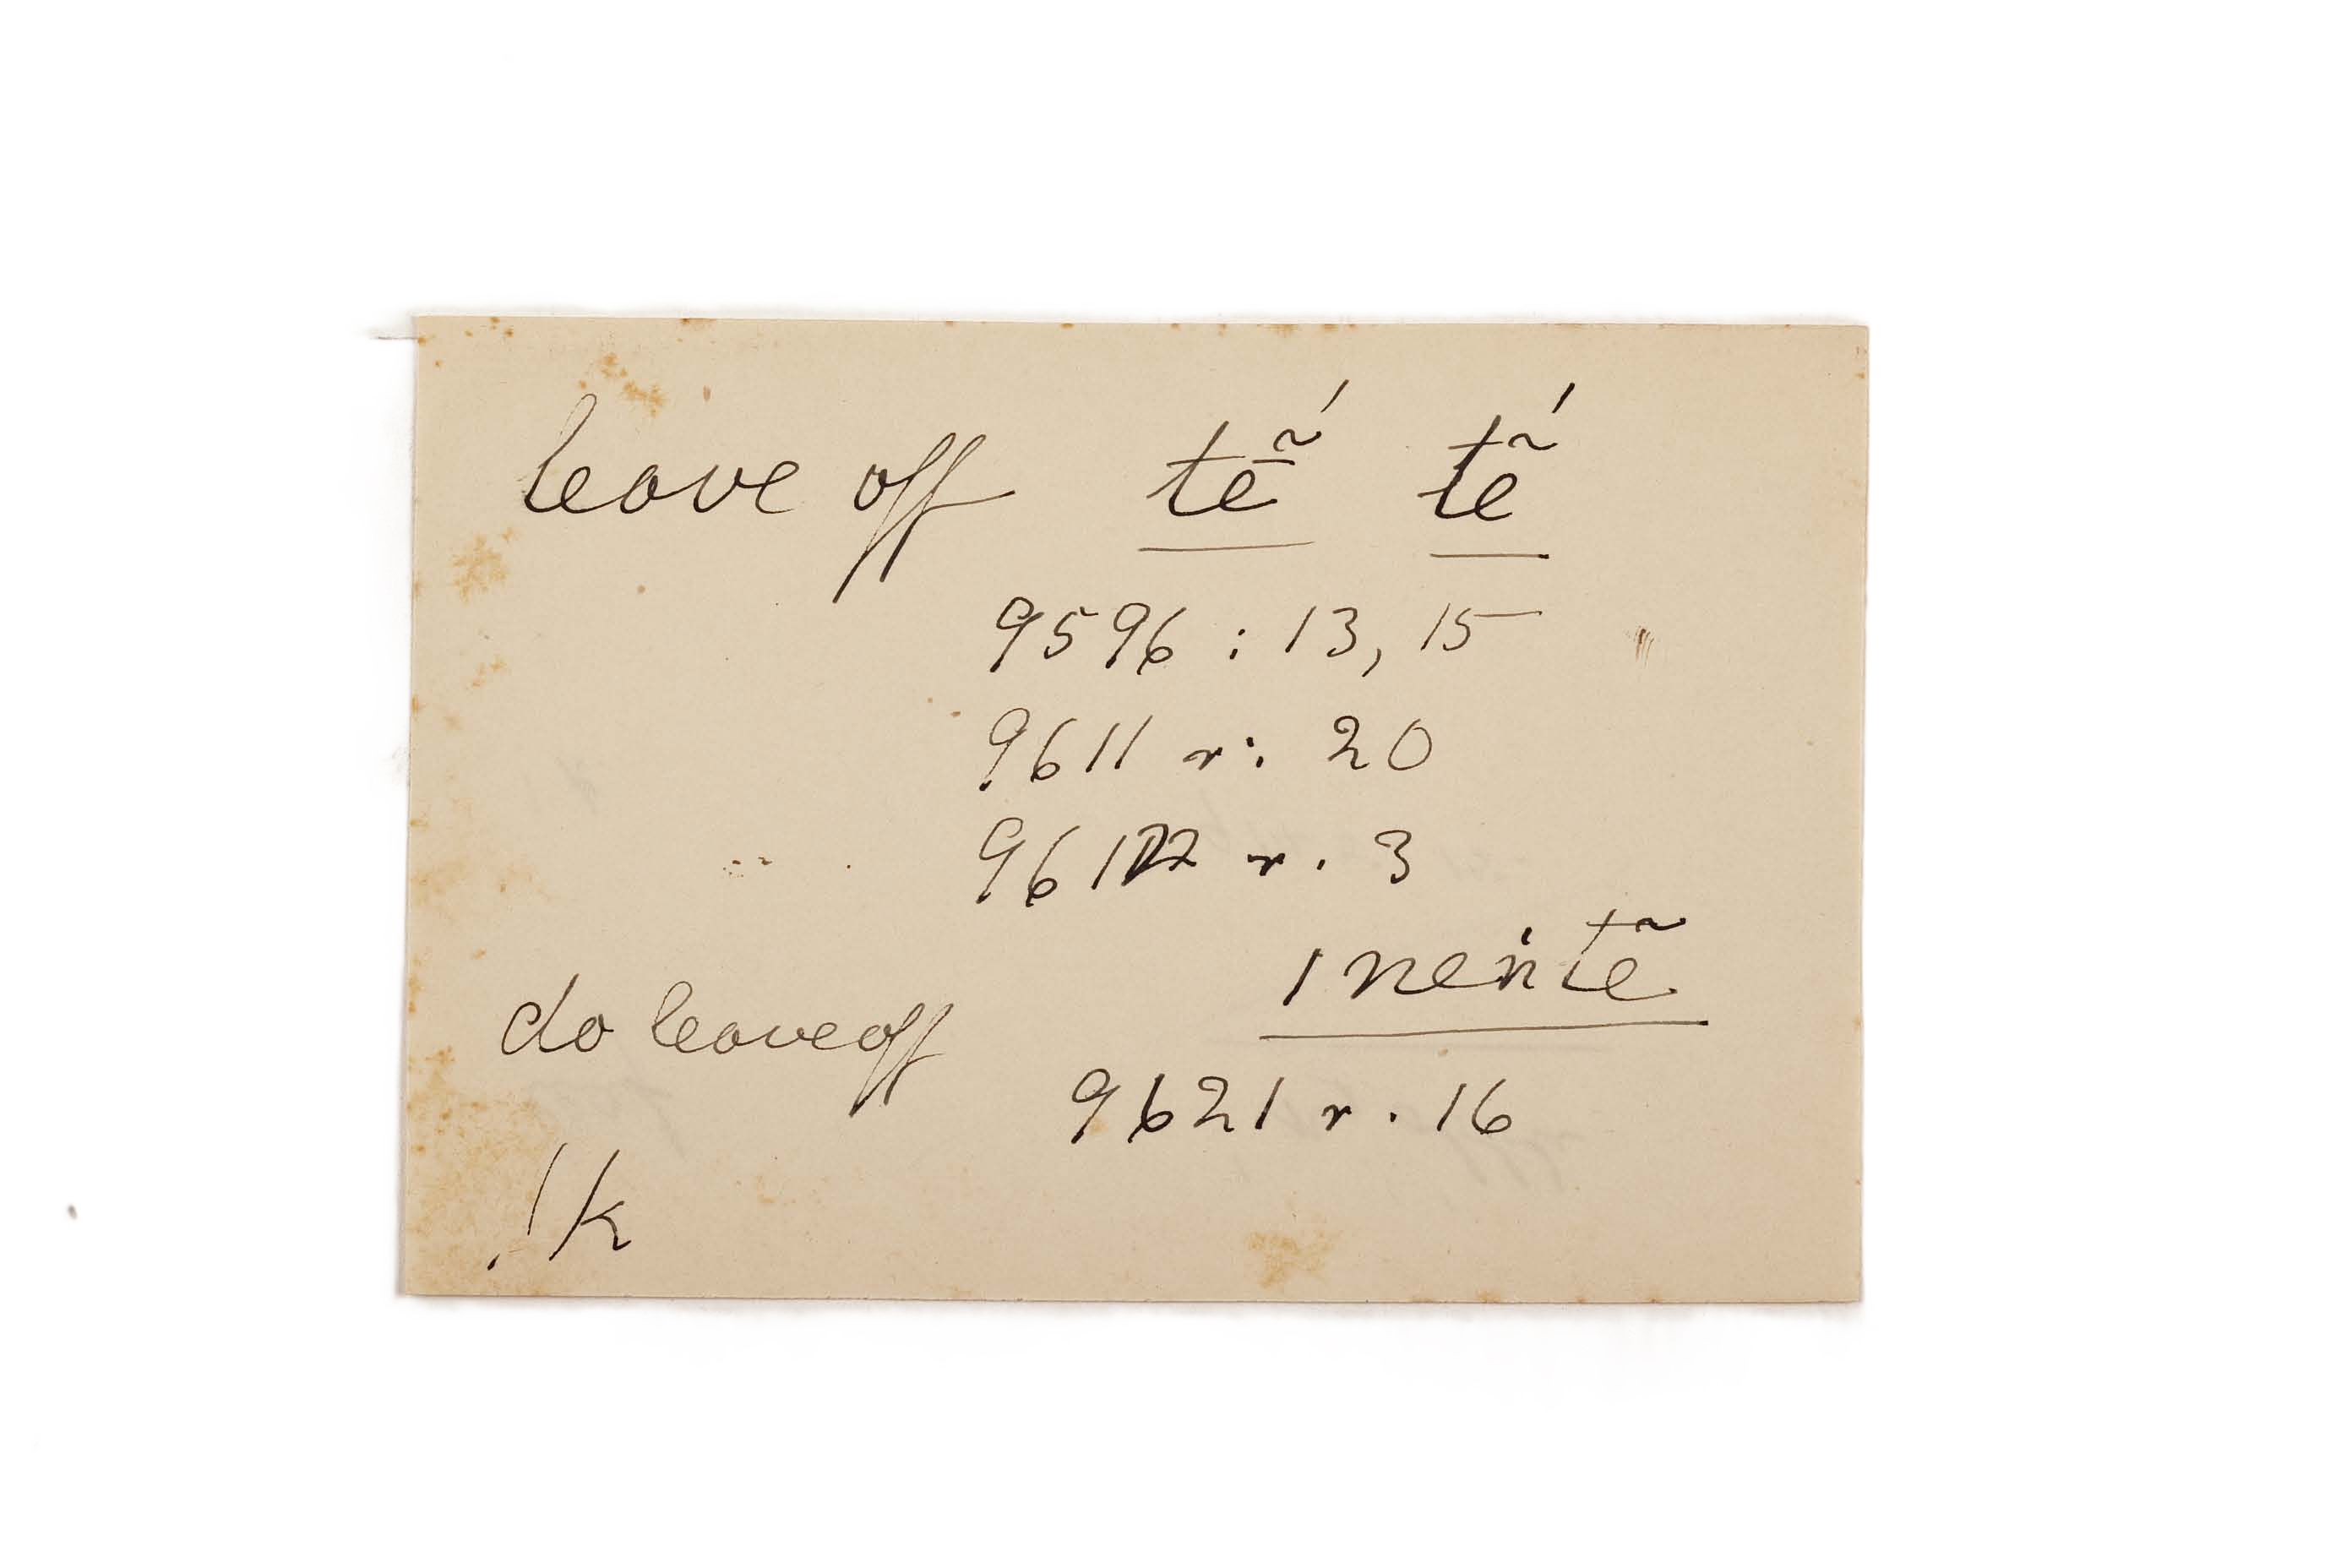 leave off tē̃́ tẽ́
9596 : 13, 15
9611 r: 20
9612 r. 3
ǀneṅtẽ
do leave off
9621 r. 16
!k